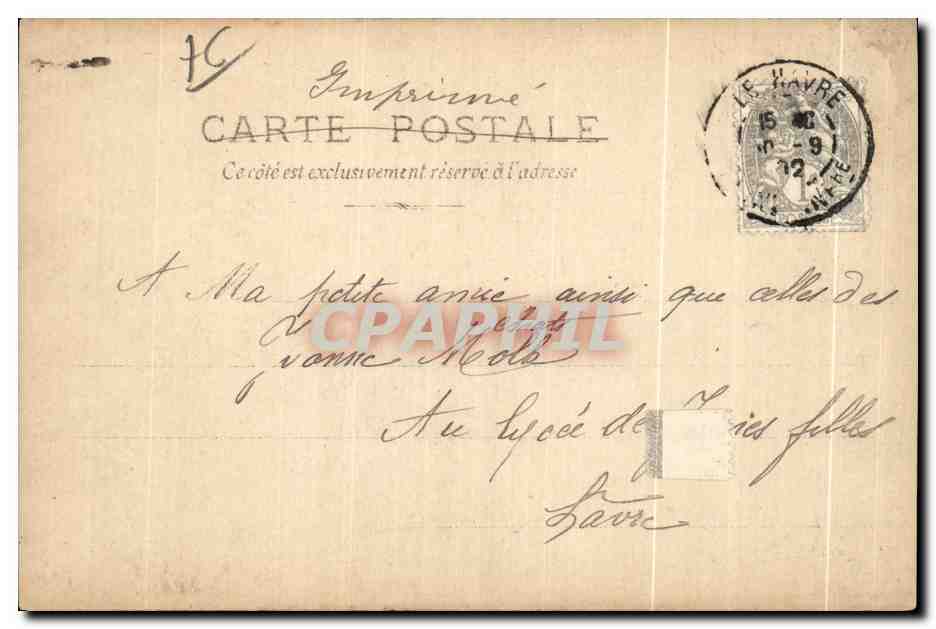 Imprimé
CARTE POSTALE
Ce côté est exclusivement réservé à l'adresse
LE HAVRE
15
-9
02
1
A Ma petite amie ainsi que celles des
chats
Yvonne Molle
Au lycée de filles
Hâvre
CPAPHIL